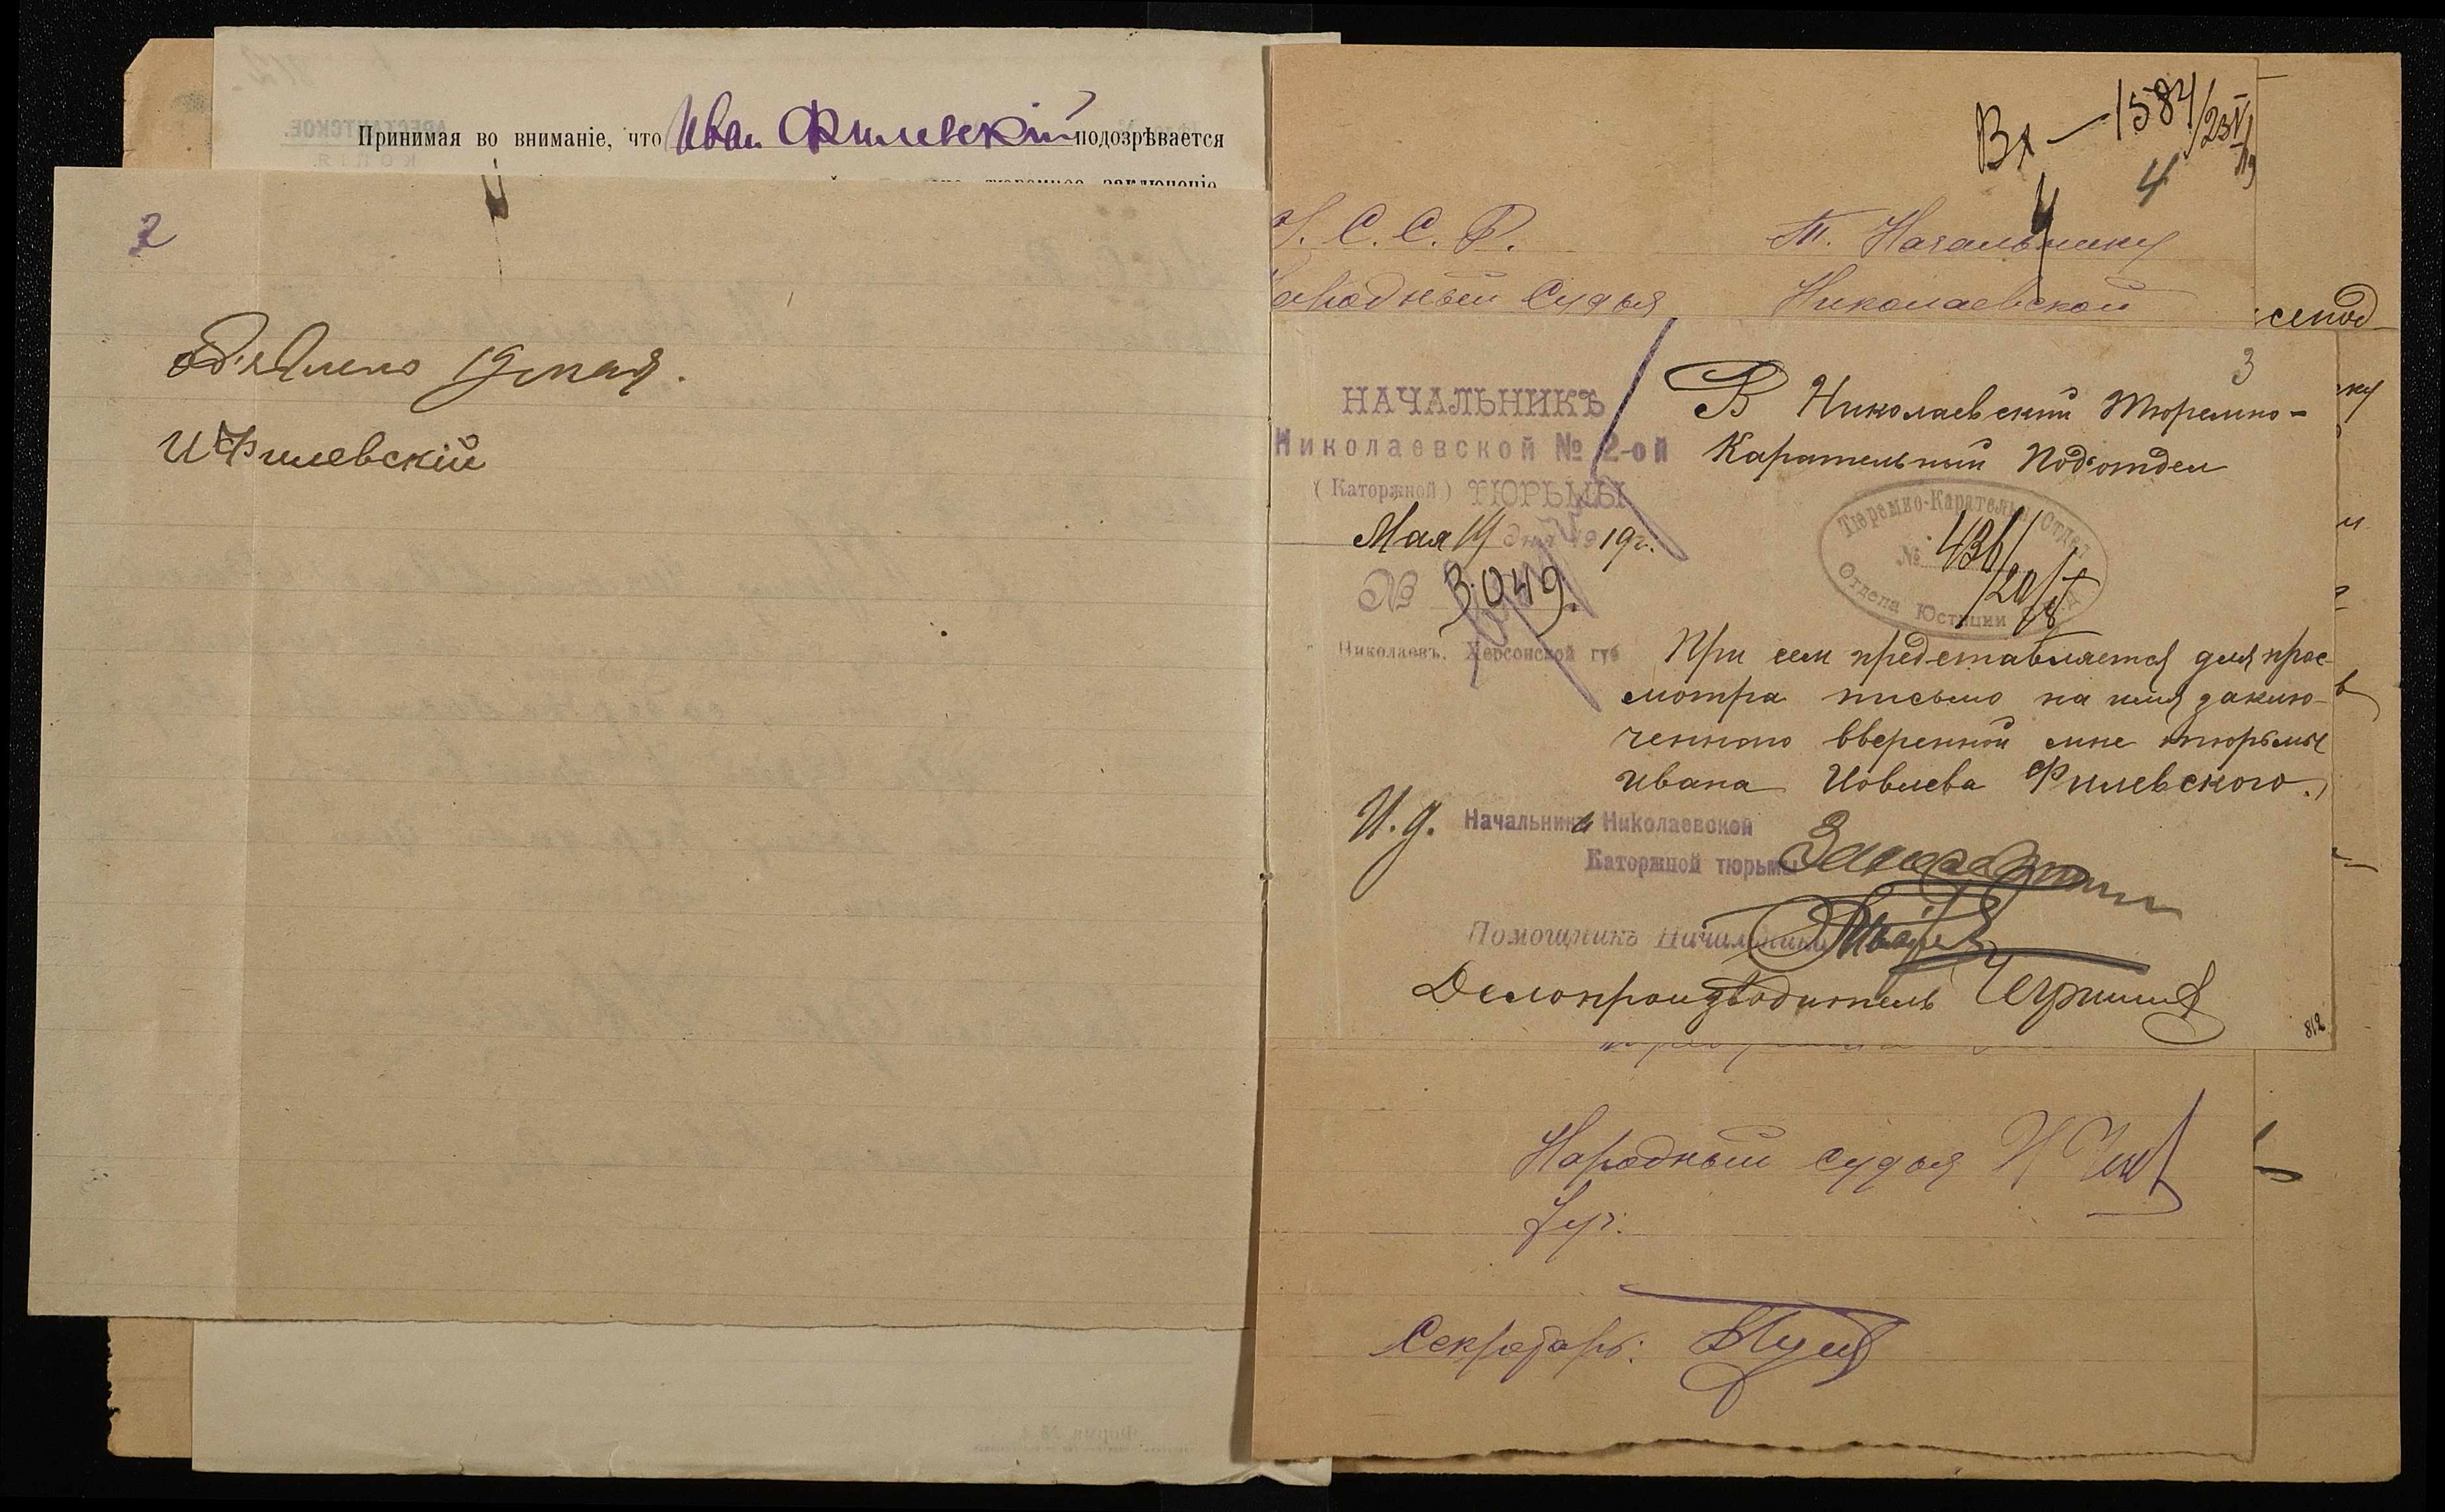 Принимая во вниманіе, что Иван Филевскій подозрѣвается
тюремное заключеніе
2
Объявлено 19 мая.
ИФилевскій
Вх — 1584/23/V 19
4
У. С. С. Р.
Народный Судья
Т. Начальнику
Николаевской
3
НАЧАЛЬНИКЪ
Николаевской № 2-ой
(Каторжной) ТЮРЬМЫ
Мая 19 дня 1919г.
№ 3049.
Николаевъ, Херсонской губ
В Николаевский Тюремно-
Карательный Подотдел
Тюремно-Карательн. Отдел
№ 436/20/V
Отдела Юстиции
При сем представляется для прос-
мотра письмо на имя заклю-
ченного вверенной мне тюрьмы
Ивана Иовлева Филевского.
И.д. Начальника Николаевской
Каторжной тюрьмы
Помощникъ Начальника
Делопроизводитель
812
Народный судья
Секретарь: